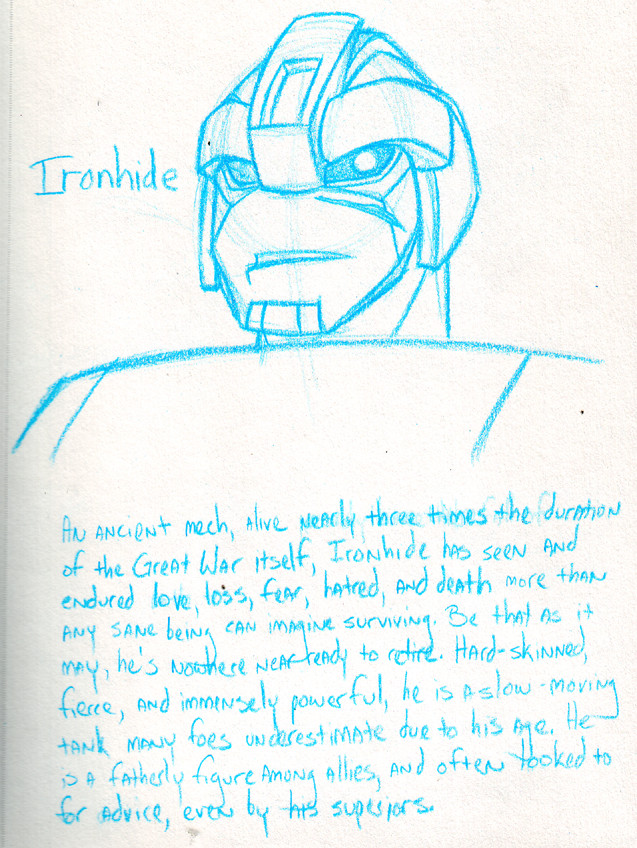 Ironhide
An ancient mech, alive nearly three times the duration
of the Great War itself, Ironhide has seen and
endured love, loss, fear, hatred, and death more than
any sane being can imagine surviving. Be that as it
may, he's nowhere near ready to retire. Hard-skinned,
fierce, and immensely powerful, he is a slow-moving
tank many foes underestimate due to his age. He
is a fatherly figure among allies, and often looked to
for advice, even by his superiors.